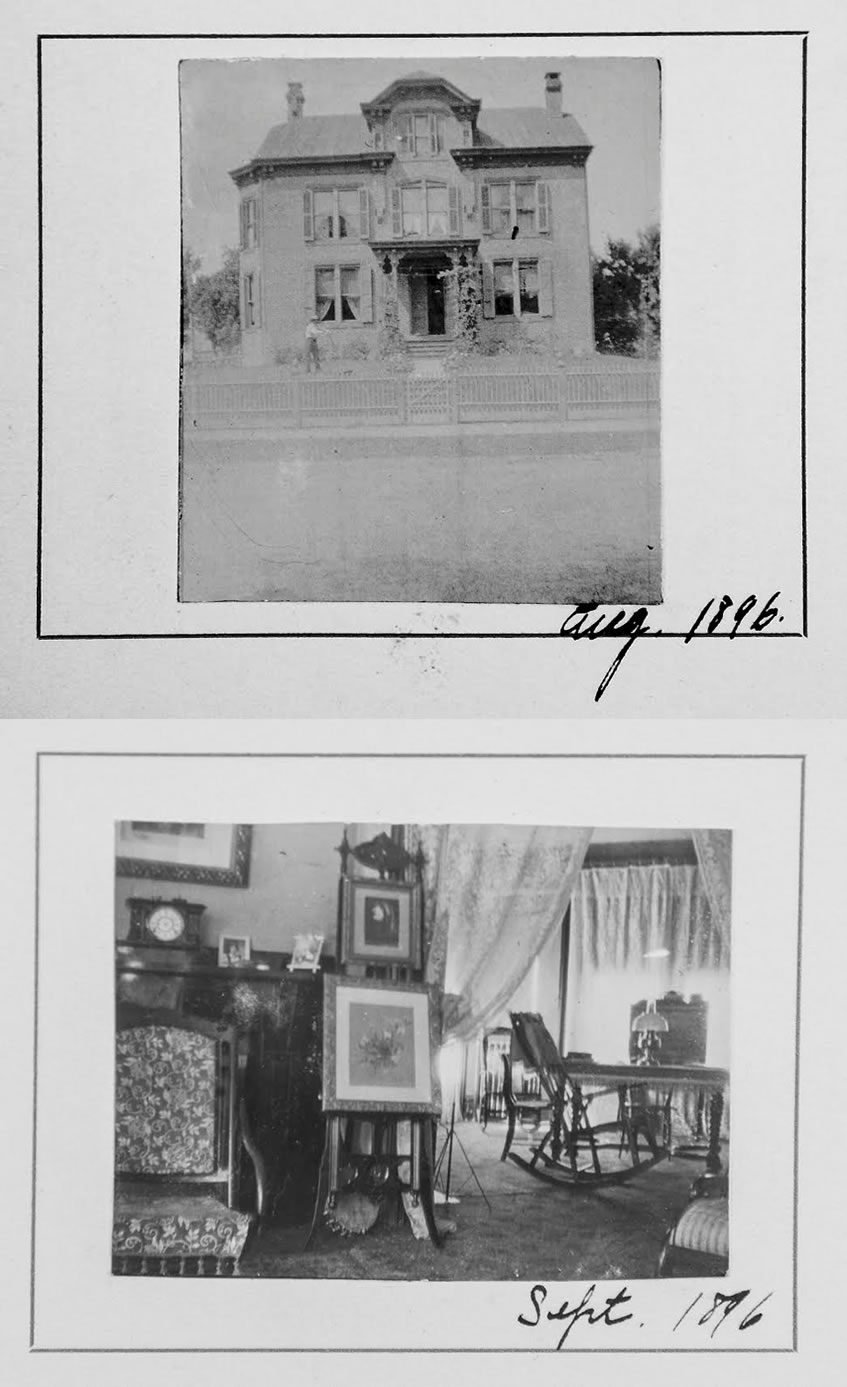 Aug. 1896.
Sept. 1896